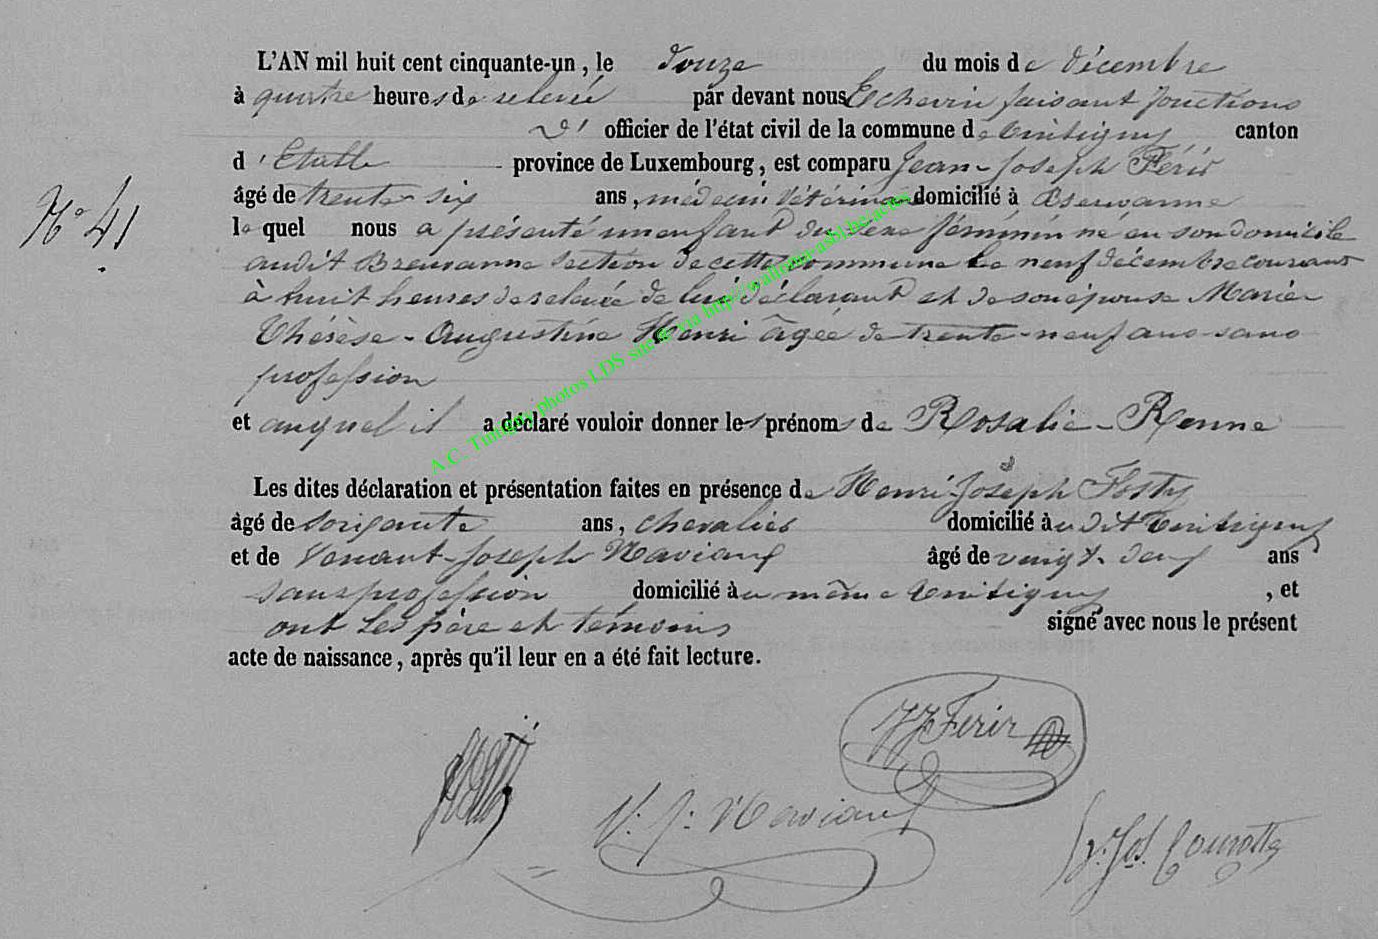 L'AN mil huit cent cinquante-un, le douze du mois de décembre
à quatre heures de relevée par devant nous Echevin faisant fonctions
d' officier de l'état civil de la commune de Tintigny canton
d'Etalle province de Luxembourg, est comparu Jean-Joseph Férir
âgé de trente six ans, médecin vétérinaire domicilié à Breuvanne
le quel nous a présenté un enfant du sexe féminin né en son domicile
audit Breuvanne section de cette commune le neuf décembre courant
à huit heures de relevée de lui déclarant et de son épouse Marie
Thérèse-Augustine Henri âgée de trente-neuf ans sans
profession
et auquel il a déclaré vouloir donner les prénoms de Rosalie-Renne
Les dites déclaration et présentation faites en présence de Henri-Joseph Fosty
âgé de soixante ans, chevalier domicilié audit Tintigny
et de Venant-Joseph Naviaux âgé de vingt-deux ans
sans profession domicilié au même Tintigny, et
ont les père et témoins signé avec nous le présent
acte de naissance, après qu'il leur en a été fait lecture.
N° 41
A.C. Tintigny photos LDS site & via http://wallonia-asbl.be/actes
JJ Ferir
V. J. Naviaux